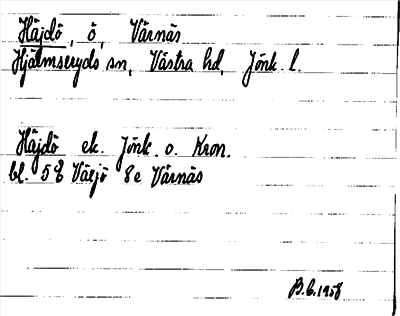 Häjdö, ö, Värnäs
Hjälmseryds sn, Västra hd, Jönk. l.
Häjdö ek. Jönk. o. Kron.
bl. 58 Växjö 8e Värnäs
B.G. 1958